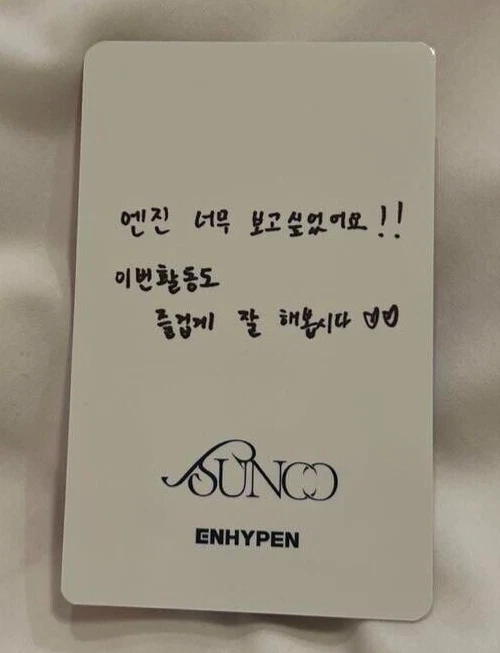 엔진 너무 보고싶었어요!!
이번활동도
즐겁게 잘 해봅시다 ♡♡
SUNOO
ENHYPEN